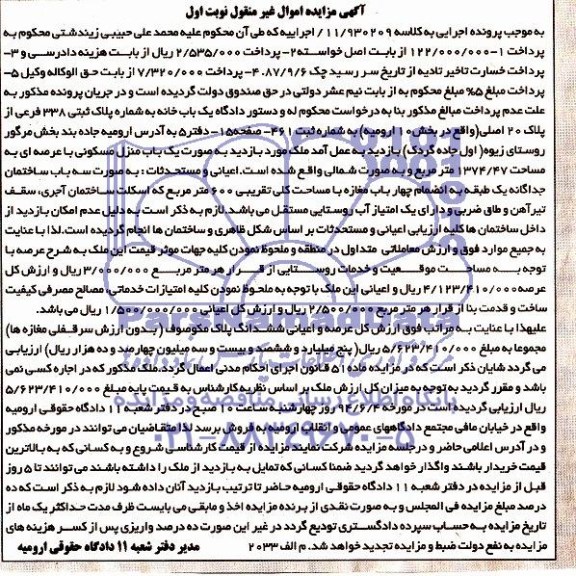 آگهی مزایده اموال غیر منقول نوبت اول
به موجب پرونده اجرایی به کلاسه ۱۱/۹۳۰۲۰۹/ اجراییه که طی آن محکوم علیه محمد علی حبیبی زیندشتی محکوم به
پرداخت ۱-۱۲۲/۰۰۰/۰۰۰ از بابت اصل خواسته۲- پرداخت ۲/۵۳۵/۰۰۰ ریال از بابت هزینه دادرسی و ۳-
پرداخت خسارت تاخیر تادیه از تاریخ سر رسید چک ۸۷/۹/۶.۴- پرداخت ۷/۳۲۰/۰۰۰ از بابت حق الوکاله وکیل ۵-
پرداخت مبلغ ۵% مبلغ محکوم به از بابت نیم عشر دولتی در حق صندوق دولت گردیده است و در جریان پرونده مذکور به
علت عدم پرداخت مبالغ مذکور بنا به درخواست محکوم له و دستور دادگاه یک باب خانه به شماره پلاک ثبتی ۳۳۸ فرعی از
پلاک ۲۰ اصلی(واقع در بخش ۱۰ ارومیه) به شماره ثبت ۴۶۱- صفحه۱۵- دفتر۵ به آدرس ارومیه جاده بند بخش مرگور
روستای زیوه( اول جاده گردک) بازدید به عمل آمد ملک مورد بازدید به صورت یک باب منزل مسکونی با عرصه ای به
مساحت ۱۳۷۴/۴۷ متر مربع و به صورت شمالی واقع شده است. اعیانی و مستحدثات : به صورت سه باب ساختمان
جداگانه یک طبقه به انضمام چهار باب مغازه با مساحت کلی تقریبی ۶۰۰ متر مربع که اسکلت ساختمان آجری، سقف
تیرآهن و طاق ضربی و دارای یک امتیاز آب روستایی مستقل می باشد. لازم به ذکر است به دلیل عدم امکان بازدید از
داخل ساختمان ها کلیه ارزیابی اعیانی و مستحدثات بر اساس شکل ظاهری و ساختمان ها انجام گردیده است. لذا با عنایت
به جمیع موارد فوق و ارزش معاملاتی متداول در منطقه و ملحوظ نمودن کلیه جهات موثر قیمت این ملک به شرح عرصه با
توجه به مساحت موقعیت و خدمات روستایی از قرار هر متر مربع ۳/۰۰۰/۰۰۰ ریال و ارزش کل
عرصه ۴/۱۲۳/۴۱۰/۰۰۰ ریال و اعیانی این ملک با توجه به ملحوظ نمودن کلیه امتیازات خدماتی، مصالح مصرفی کیفیت
ساخت و قدمت بنا از قرار هر متر مربع ۲/۵۰۰/۰۰۰ ریال و ارزش کل اعیانی ۱/۵۰۰/۰۰۰/۰۰۰ ریال می باشد.
علیهذا با عنایت به مراتب فوق ارزش کل عرصه و اعیانی ششدانگ پلاک مکوصوف ( بدون ارزش سرقفلی مغازه ها)
مجموعا به مبلغ ۵/۶۲۳/۴۱۰/۰۰۰ ریال( پنج میلیارد و ششصد و بیست و سه میلیون چهارصد و ده هزار ریال) ارزیابی
می گردد شایان ذکر است که در مزایده ماده ۵۱ قانون اجرای احکام مدنی اعمال گردد. ملک مذکور که در اجاره کسی نمی
باشد و مقرر گردید به توجه به میزان کل ارزش ملک بر اساس نظریه کارشناس به قیمت پایه مبلغ ۵/۶۲۳/۴۱۰/۰۰۰
ریال ارزیابی گردیده است در مورخه ۹۴/۶/۴ روز چهارشنبه ساعت ۱۰ صبح در دفتر شعبه ۱۱ دادگاه حقوقی ارومیه
واقع در خیابان مافی مجتمع دادگاههای عمومی و انقلاب ارومیه به فروش برسد لذا متقاضیان می توانند در مورخه مذکور
و در آدرس اعلامی حاضر و در جلسه مزایده شرکت نمایند مزایده از قیمت کارشناسی شروع و به کسانی که به بالاترین
قیمت خریدار باشند واگذار خواهد گردید ضمنا کسانی که تمایل به بازدید از ملک را داشته باشند می توانند تا ۵ روز
قبل از مزایده در دفتر شعبه ۱۱ دادگاه حقوقی ارومیه حاضر تا ترتیب بازدید آنان داده شود لازم به ذکر است که ده
درصد مبلغ مزایده فی المجلس و به صورت نقدی از برنده مزایده اخذ و مابقی می بایست ظرف مدت حداکثر یک ماه از
تاریخ مزایده به حساب سپرده دادگستری تودیع گردد در غیر این صورت ده درصد واریزی پس از کسر هزینه های
مزایده به نفع دولت ضبط و مزایده تجدید خواهد شد. م الف ۲۰۳۳
مدیر دفتر شعبه ۱۱ دادگاه حقوقی ارومیه
پایگاه اطلاع رسانی مناقصه و مزایده
۰۲۱-۸۸۳۴۹۶۷۰-۵